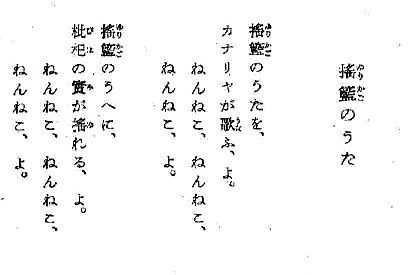 揺籃のうた
揺籃のうたを、
カナリヤが歌ふ、よ。
ねんねこ、ねんねこ、
ねんねこ、よ。
揺籃のうへに、
枇杷の実が揺れる、よ。
ねんねこ、ねんねこ、
ねんねこ、よ。